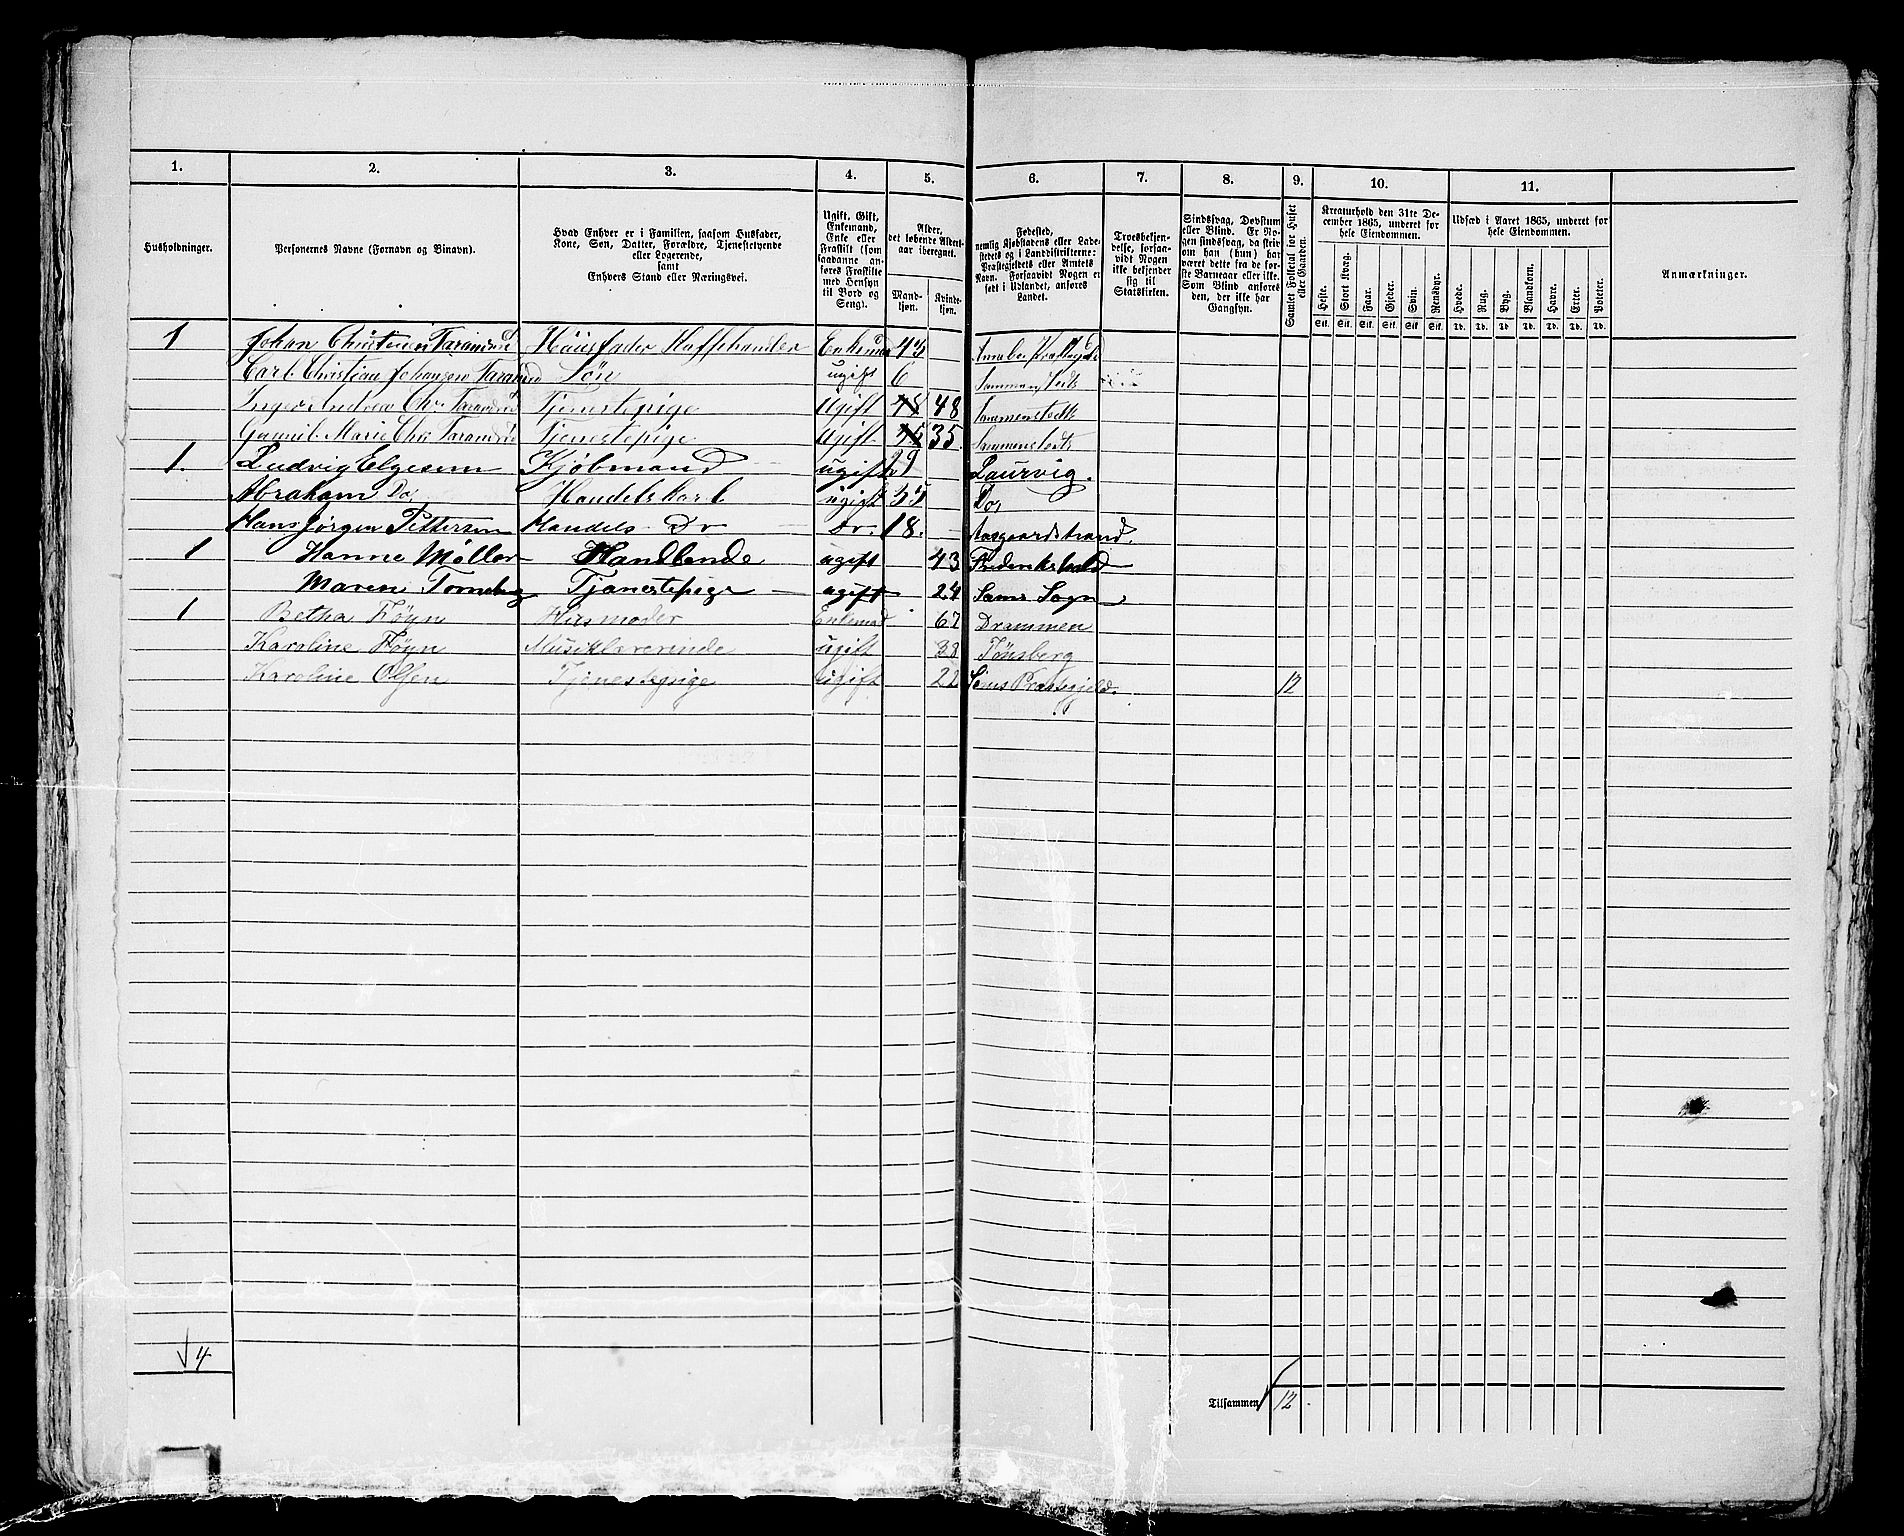 1. 2. 3. 4. 5. 6. 7. 8. 9. 10. 11.
Husholdninger.
Personernes Navne (Fornavn og Binavn).
Hvad Enhver er i Familien, saasom Husfader,
Kone, Søn, Datter, Forældre, Tjenestetyende
eller Logerende,
samt
Enhvers Stand eller Næringsvei.
Ugift, Gift,
Enkemand,
Enke eller
Fraskilt (som
saadanne an-
føres Fraskilte
med Hensyn
til Bord og
Seng).
Alder,
det løbende Alders-
aar iberegnet.
Mand-
kjøn.
Kvinde-
kjøn.
Fødested,
nemlig Kjøbstadens eller Lade-
stedets og i Landdistrikterne:
Præstegjeldets eller Amtets
Navn. Forsaavidt Nogen er
født i Udlandet, anføres
Landet.
Troesbekjen-
delse, forsaa-
vidt Nogen
ikke bekjender
sig til
Statskirken.
Sindssvag, Døvstum
eller Blind. Er No-
gen sindssvag, da skriv
om han (hun) har
været dette fra de før-
ste Barneaar eller ikke.
Som Blind anføres
den, der ikke har
Gangsyn.
Samlet Folketal for Huset
eller Gaarden.
Kreaturhold den 31te De-
cember 1865, underet for
hele Eiendommen.
Heste. Stort Kvæg. Faar. Gjeder. Svin. Rensdyr.
Stk. Stk. Stk. Stk. Stk. Stk.
Udsæd i Aaret 1865, underet for
hele Eiendommen.
Hvede. Rug. Byg. Blandkorn. Havre. Erter. Poteter.
Td. Td. Td. Td. Td. Td. Td.
Anmærkninger.
1 Johan Christian Husfader Kaffehandler Enkemd 45
Carl Christian Johansen Søn ugift 6
Inger Andrea Chr. Tjenestepige Ugift 48
Gunnil Marie Chr. Tjenestepige Ugift 35
1 Ludvig Elgesem Kjøbmand ugift 29 Laurvig.
Abraham Do. Handelskarl ugift Do.
Hans Jørgen Pettersen Handels- Do Do. 18. Aasgaardstrand.
1 Hanne Møller Handlende ugift 43 Frederikshald
Maren Tjenestepige ugift 24 Sems Sogn
1 Betha Føyn Husmoder 67 Drammen
Karoline Føyn Musiklærerende ugift 38 Tönsberg
Karoline Olsen Tjenestepige Ugift 22 Sems Præstegjeld. 12
4
Tilsammen 12